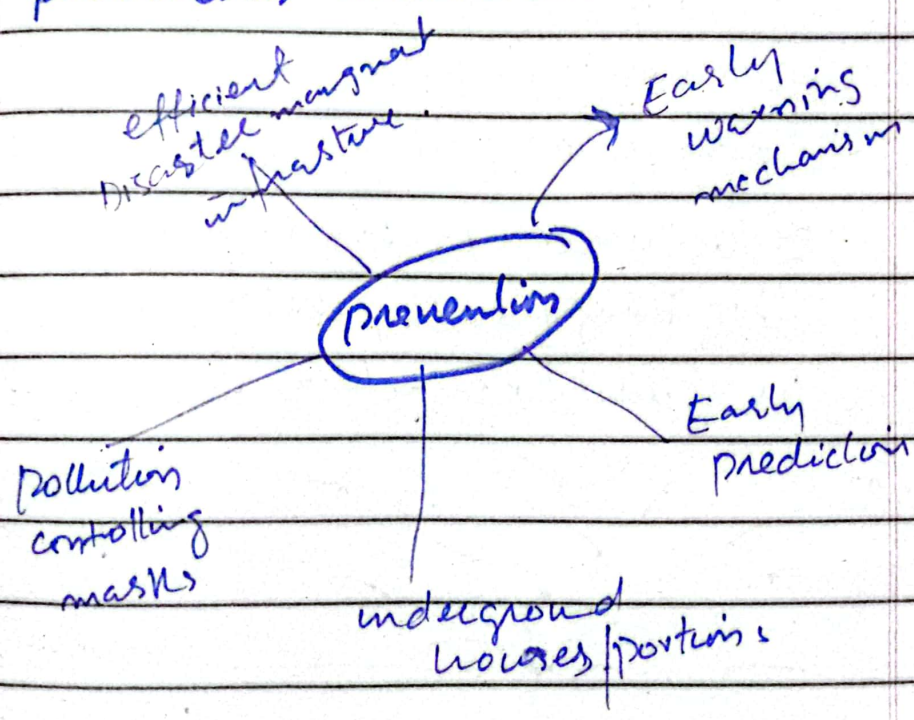 efficient
Disaster mangment
infrasture.
Early
warning
mechanism
prevention
Early
prediction
pollution
controlling
masks
underground
houses/portions